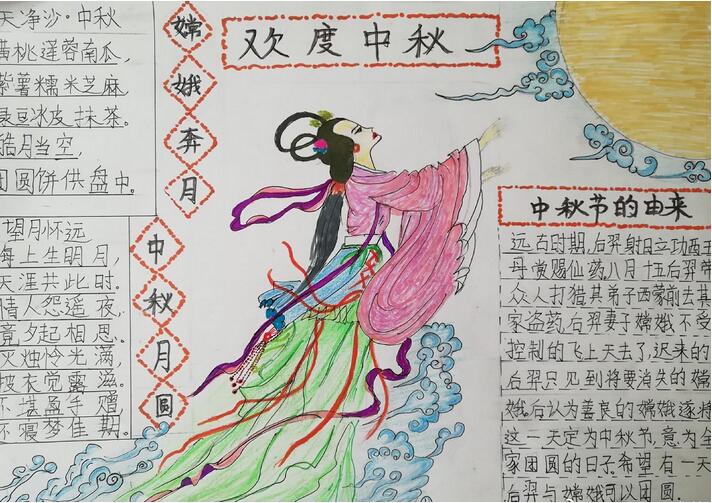 天净沙·中秋
黄桃莲蓉南瓜，
紫薯糯米芝麻
豆冰皮抹茶。
皓月当空，
团圆饼供盘中。
嫦娥奔月
欢度中秋
望月怀远
海上生明月，
天涯共此时。
情人怨遥夜，
竟夕起相思。
灭烛怜光满，
披衣觉露滋。
不堪盈手赠
还寝梦佳期。
中秋月圆
中秋节的由来
远古时期,后羿射日立功西王
母赏赐仙药八月十五后羿带
众人打猎其弟子西蒙前去其
家盗药,后羿妻子嫦娥不受
控制的飞上天去了,迟来的
后羿只见到将要消失的嫦
娥后认为善良的嫦娥逐将
这一天定为中秋节,意为全
家团圆的日子.希望有一天
后羿与嫦娥可以团圆